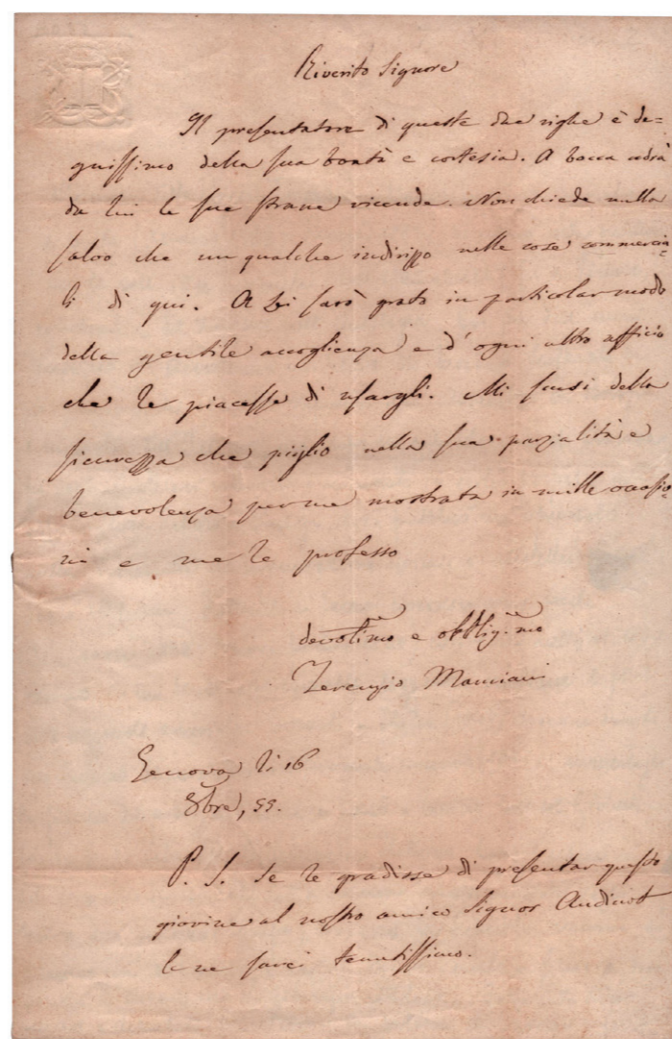 Riverito Signore
Il presentatore di queste due righe è de=
gnissimo della sua bontà e cortesia. A bocca udrà
da lui le sue strane vicende. Non chiede nulla
salvo che un qualche indirizzo nelle cose commercia=
li di qui. A Lei sarò grato in particolar modo
della gentile accoglienza e d'ogni altro afficio
che le piacesse di usargli. Mi scusi della
sicurezza che piglio nella sua parzialità e
benevolenza per me mostrata in mille occasio=
ni e me le professo
devotimo e obbligmo
Terenzio Mamiani
Genova li 16
8bre, 55.
P. S. Se le gradisse di presentar questo
giovine al nostro amico Signor Audinot
le ne sarei tenutissimo.